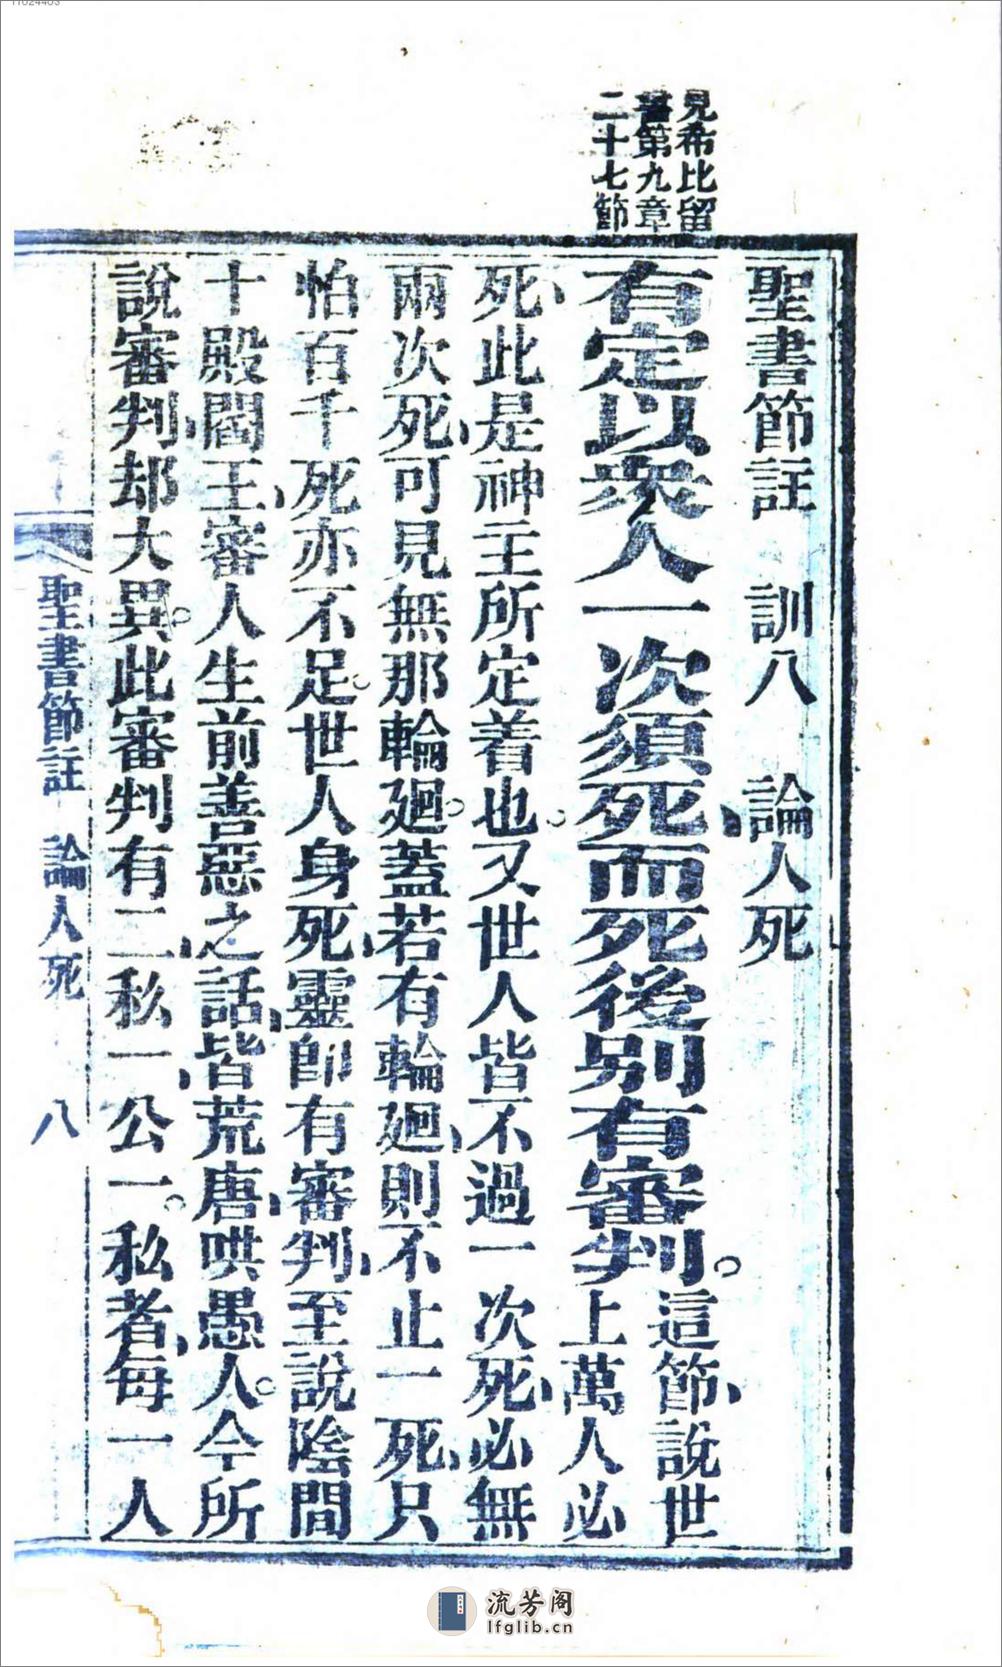 11024403
見希比留
書第九章
二十七節
聖書節註 訓八 論人死
有定以衆人一次須死、而死後別有審判。這節、說世
上萬人必
死、此是神主所定着也。又世人皆不過一次死、必無
兩次死、可見無那輪廻。蓋若有輪廻、則不止一死、只
怕百千死亦不足。世人身死、靈即有審判、至說陰間
十殿閻王、審人生前善惡之話、皆荒唐、哄愚人。今所
說審判、却大異。此審判有二、私一、公一。私者、每一人
聖書節註 論人死 八
流芳阁
lfglib.cn